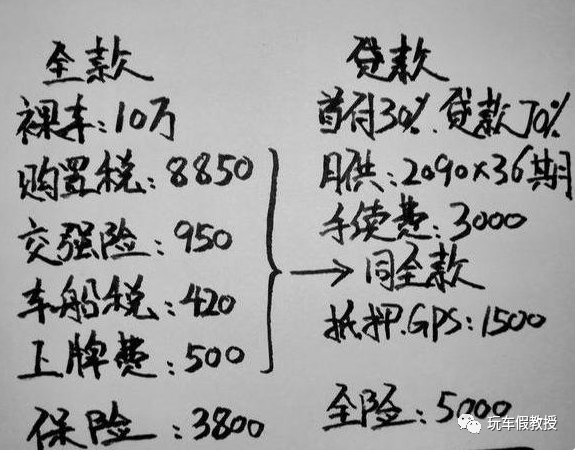 全款
裸车:10万
购置税:8850
交强险:950
车船税:420
上牌费:500
保险:3800
贷款
首付30%.贷款70%
月供:2090×36期
手续费:3000
→同全款
抵押.GPS:1500
全险:5000
玩车假教授